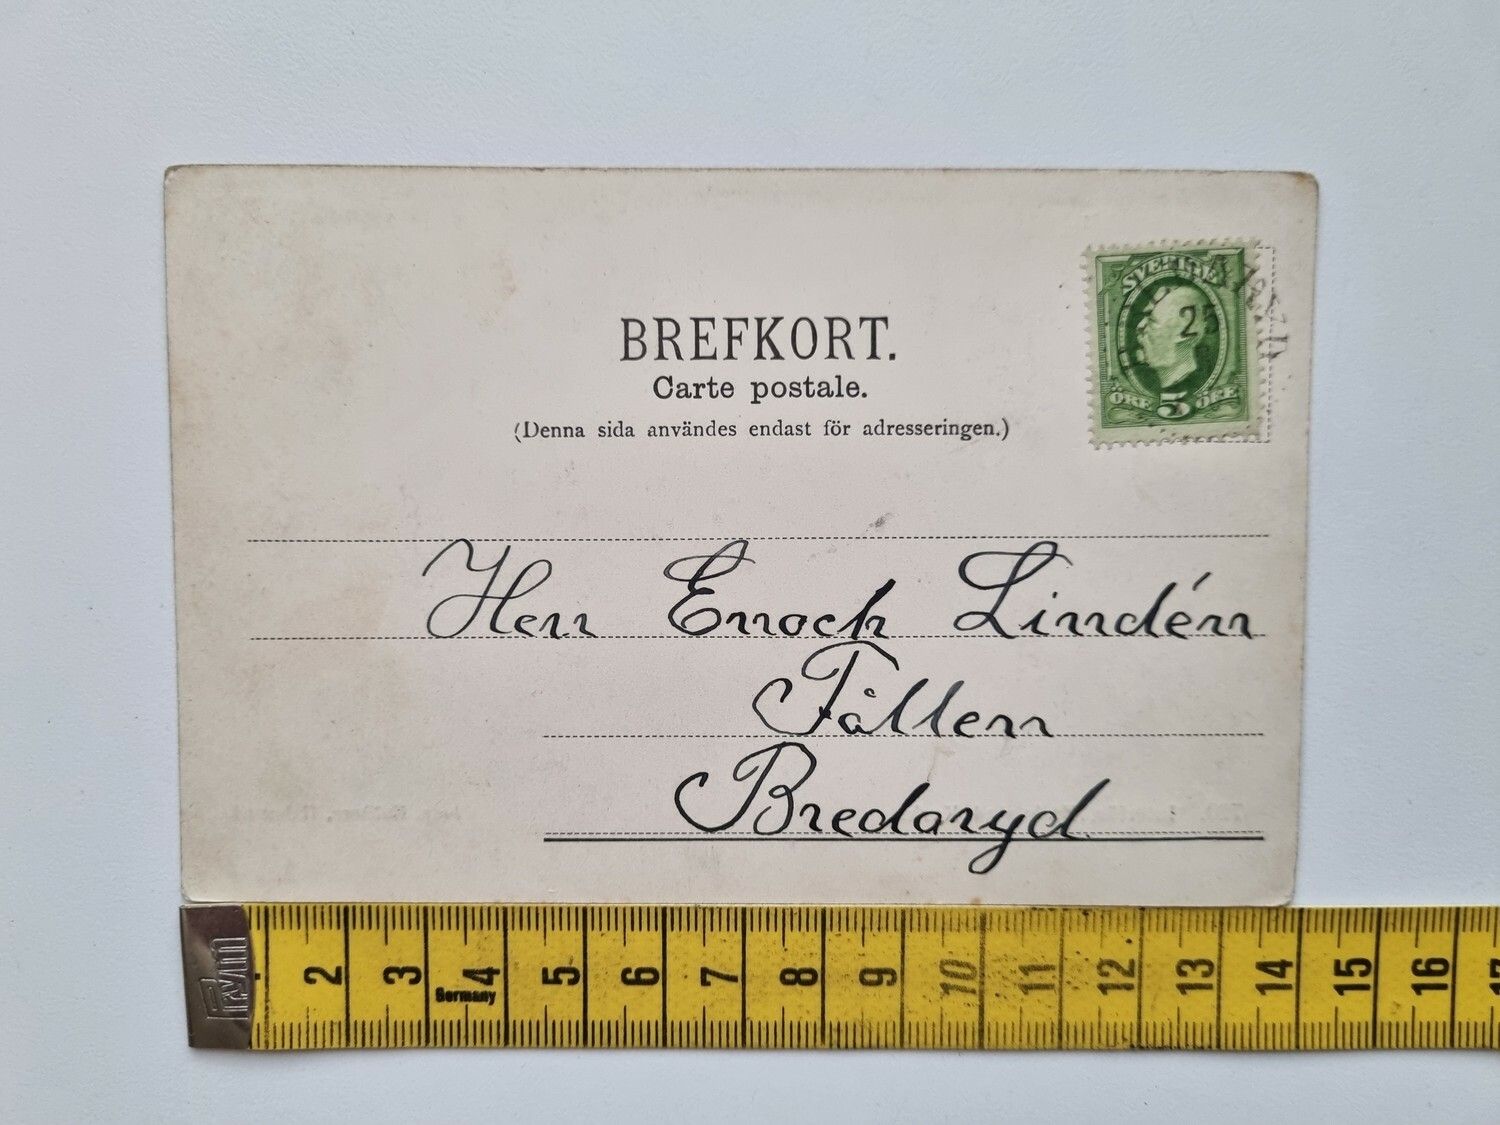 BREFKORT.
Carte postale.
(Denna sida användes endast för adresseringen.)
SVERIGE
25
ÖRE 5 ÖRE
Herr Enoch Lindén
Fållen
Bredaryd
Prym
2 3 4 5 6 7 8 9 10 11 12 13 14 15 16 17
Germany